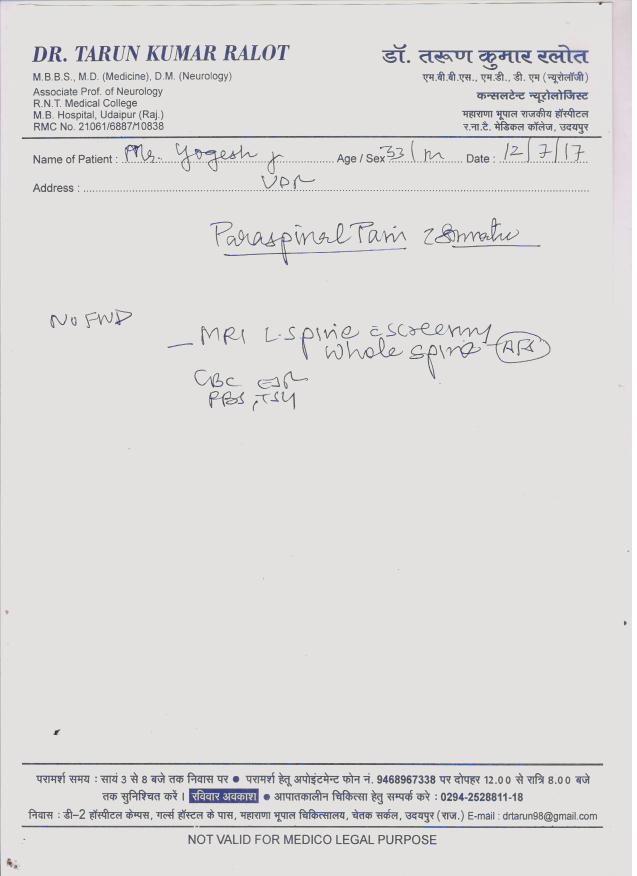 DR. TARUN KUMAR RALOT
M.B.B.S., M.D. (Medicine), D.M. (Neurology)
Associate Prof. of Neurology
R.N.T. Medical College
M.B. Hospital, Udaipur (Raj.)
RMC No. 21061/6887/10838
डॉ. तरूण कुमार रलोत
एम.बी.बी.एस., एम.डी., डी. एम (न्यूरोलॉजी)
कन्सलटेन्ट न्यूरोलोजिस्ट
महाराणा भूपाल राजकीय हॉस्पीटल
र.ना.टै. मेडिकल कॉलेज, उदयपुर
Name of Patient : Mr. Yogesh Jr Age / Sex 33/m Date : 12/7/17
Address : UDR
Paraspinal Pain
No FND
MRI L-Spine c screening
Whole spine
CBC ESR
RBS, TSH
परामर्श समय : सायं 3 से 8 बजे तक निवास पर ● परामर्श हेतू अपोइंटमेन्ट फोन नं. 9468967338 पर दोपहर 12.00 से रात्रि 8.00 बजे
तक सुनिश्चित करें । रविवार अवकाश ● आपातकालीन चिकित्सा हेतु सम्पर्क करे : 0294-2528811-18
निवास : डी–2 हॉस्पीटल केम्पस, गर्ल्स हॉस्टल के पास, महाराणा भूपाल चिकित्सालय, चेतक सर्कल, उदयपुर (राज.) E-mail : drtarun98@gmail.com
NOT VALID FOR MEDICO LEGAL PURPOSE